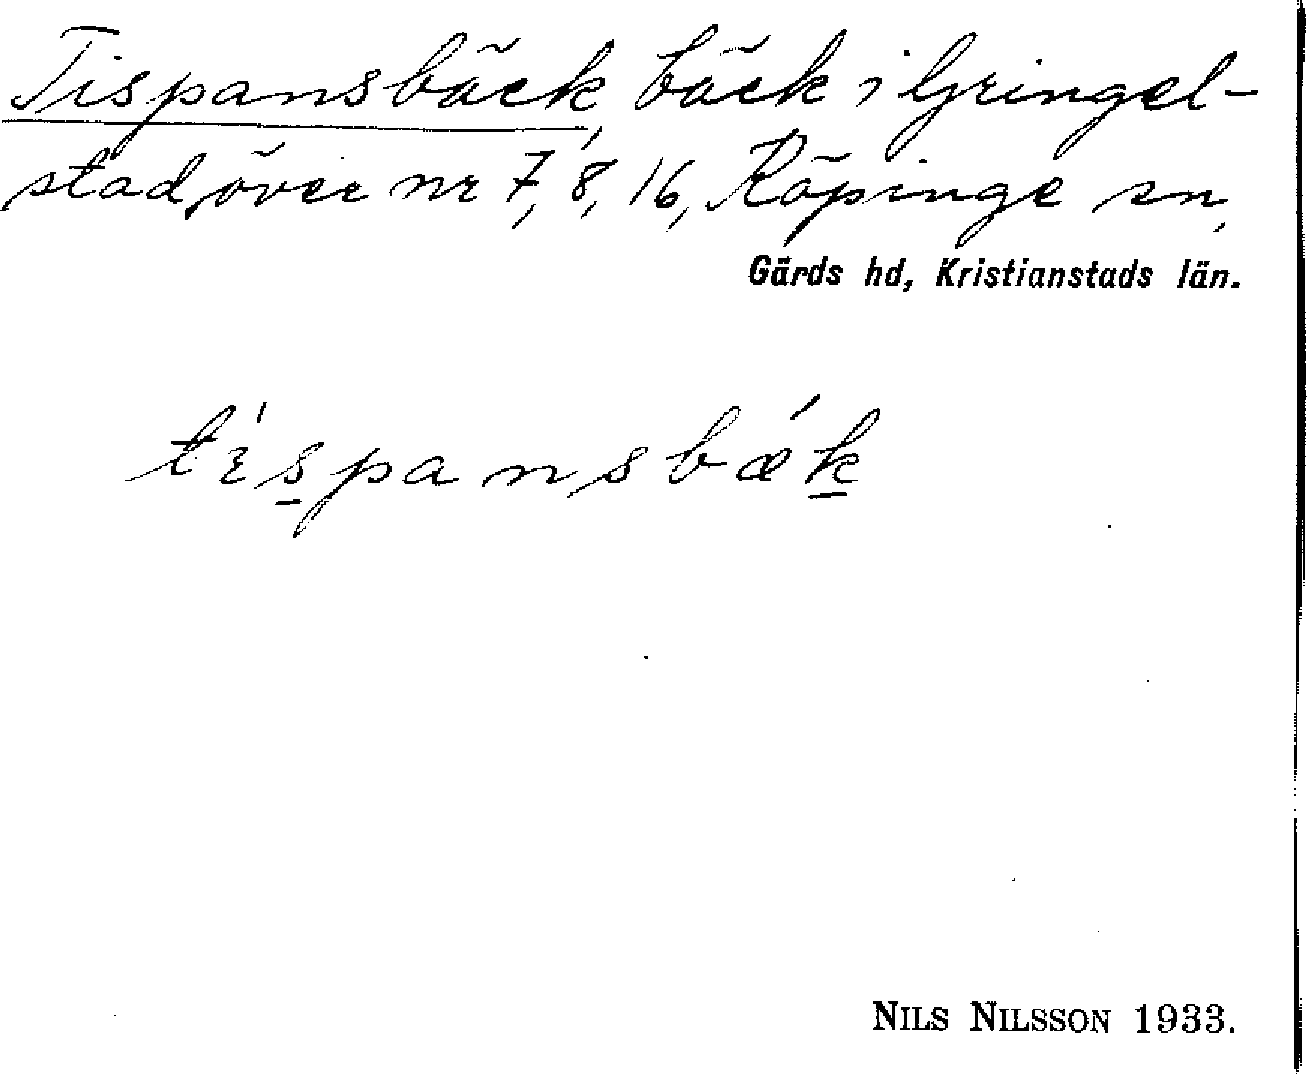 Tispansbäck, bäck i Gringel-
stad, över nr 7, 8, 16, Köpinge sn,
Gärds hd, Kristianstads län.
tɩ́s̲pansbæ´k̲
NILS NILSSON 1933.